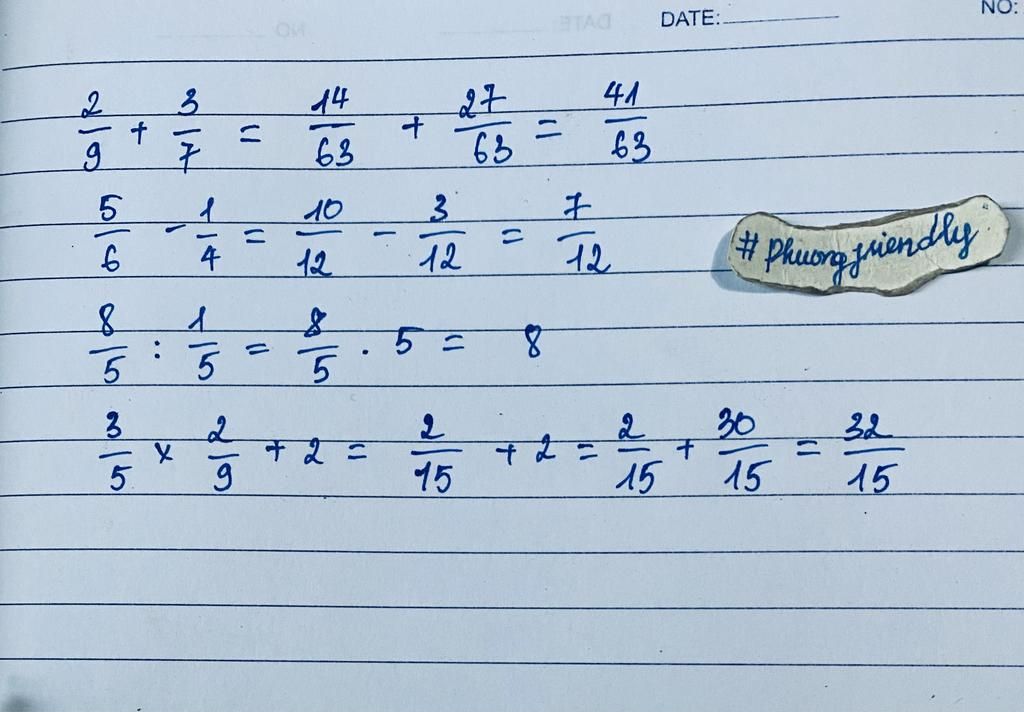 DATE:
NO:
2/9 + 3/7 = 14/63 + 27/63 = 41/63
5/6 - 1/4 = 10/12 - 3/12 = 7/12
#phuongfriendly
8/5 : 1/5 = 8/5 . 5 = 8
3/5 x 2/9 + 2 = 2/15 + 2 = 2/15 + 30/15 = 32/15